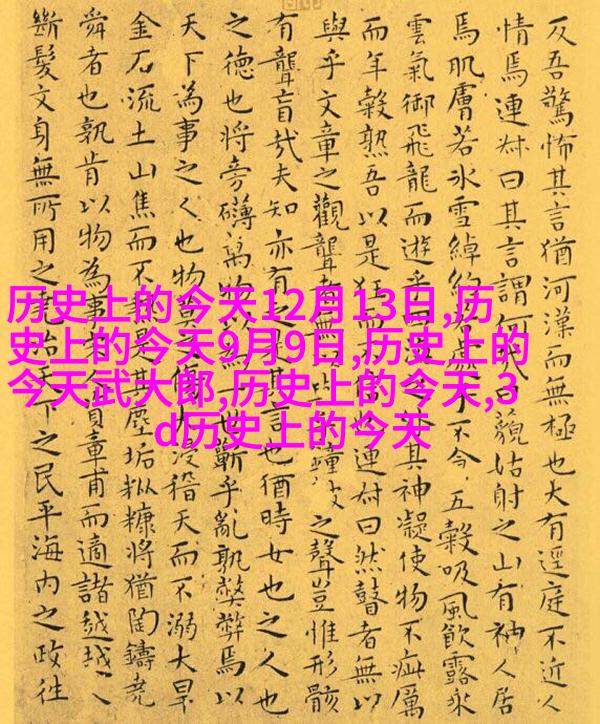 历史上的今天12月13日,历
史上的今天9月9日,历史上的
今天武大郎,历史上的今天,3
d历史上的今天
反吾驚怖其言猶河漢而無極也大有逕庭不近人
情焉連叔曰其言謂何哉曰藐姑射之山有神人居
焉肌膚若冰雪綽約若處子不食五穀吸風飲露乘
雲氣御飛龍而遊乎四海之外其神凝使物不疵厲
而年穀熟吾以是狂而不信也連叔曰然瞽者無以
與乎文章之觀聾者無以與乎鐘鼓之聲豈惟形骸
有聾盲哉夫知亦有之是其言也猶時女也之人也
之德也將旁礴萬物以為一世蘄乎亂孰弊弊焉以
天下為事之人也物莫之傷大浸稽天而不溺大旱
金石流土山焦而不熱是其塵垢粃糠將猶陶鑄堯
舜者也孰肯以物為事宋人資章甫而適諸越越人
斷髮文身無所用之堯治天下之民平海內之政往